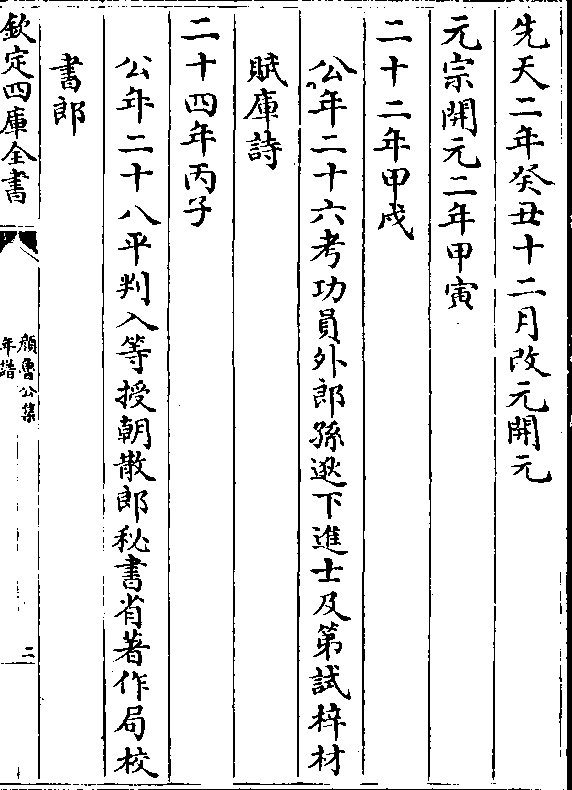 先天二年癸丑十二月改元開元
元宗開元二年甲寅
二十二年甲戌
公年二十六考功員外郎孫逖下進士及第試梓材
賦庫詩
二十四年丙子
公年二十八平判入等授朝散郎秘書省著作局校
書郎
欽定四庫全書
顔魯公集
年譜
二